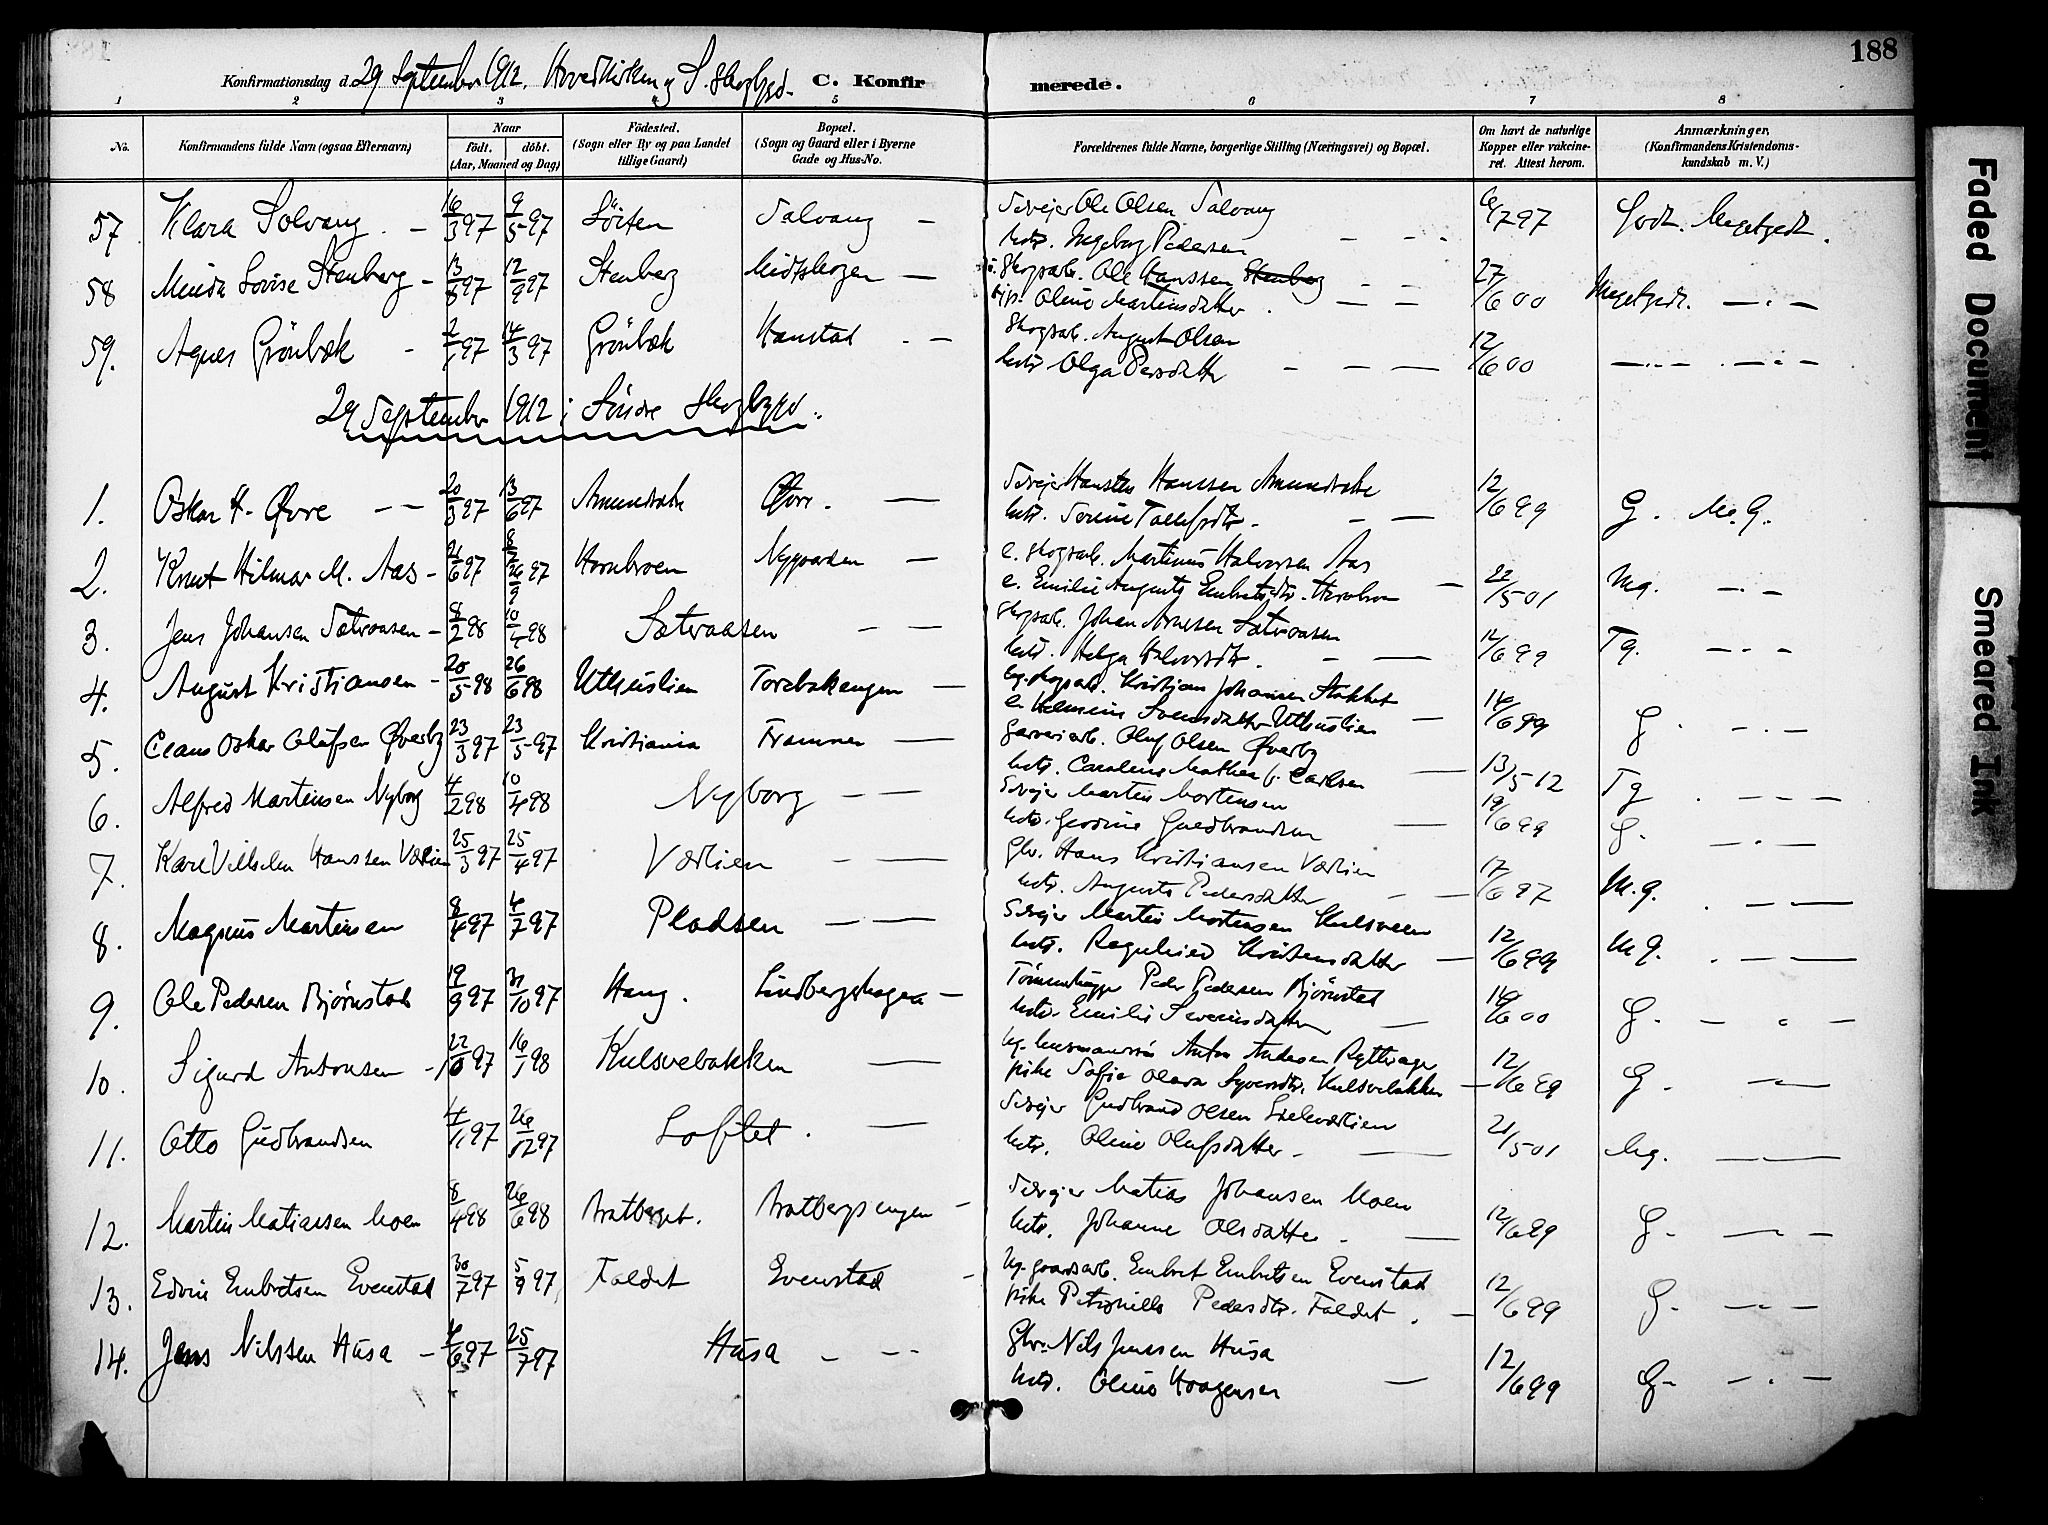 188
Konfirmationsdag d. 29 September 1912. Hovedkirken og S. Skogbygd.
C. Konfirmerede.
1 2 3 4 5 6 7 8
No. Konfirmandens fulde Navn (ogsaa Efternavn) Naar født. døbt. (Aar, Maaned og Dag) Fødested. (Sogn eller By og paa Landet tillige Gaard) Bopæl. (Sogn og Gaard eller i Byerne Gade og Hus-No. Forældrenes fulde Navne, borgerlige Stilling (Næringsvei) og Bopæl. Om havt de naturlige Kopper eller vakcineret. Attest herom. Anmærkninger, (Konfirmandens Kristendomskundskab m. V.)
57. Klara Solvang 16/3 97 9/5 97 Løiten Solvang Selvejer Ole Olsen Solvang 6/7 97 Godt. Megetgodt.
hustr. Ingeborg Pedersen
58 Minda Lovise Stenberg 13/8 97 12/9 97 Stenberg Midtskogen Skogsarb. Ole Hanssen Stenberg 27/6 00 Megetgodt.
Oline Martinsdatter
59. Agnes Grönbæk 2/1 97 14/3 97 Grönbæk Hanstad Skogsarb. August Olsen 12/6 00
hustr. Olga Persdatter
29 September 1912 i Söndre Skogbygd.
1. Oskar H. Øvre 20/3 97 13/6 97 Amundsæte Øvre. Selvejer Hans Hanssen Amundsæte 12/6 99 G. M.G.
hustr.
2. Knut Hilmar M. Aas 21/6 97 26/9 97 Hornbroen Nygaarden e. Skogsarb. Martinus Halvorsen Aas 22/5 01 Mg.
e. Emilie Augusta Embretsdtr. Hornbroen
3. Jens Johansen Sætraasen 8/2 98 10/4 98 Sætraasen Skogsarb. Johan Arnesen Sætraasen 12/6 99 Tg.
hustr. Helga Halvorsdtr.
4. August Kristiansen 20/5 98 26/6 98 Uthuslien Torsbakengen Ug. skogsarb. Kristian Johansen Stakket 14/6 99 G
Svensdatter Uthuslien
5. Claus Oskar Olufsen Øverby 23/3 97 23/5 97 Kristiania Frammen Garveriarb. Oluf Olsen Øverby 13/5 12 Tg
hustr. Caroline Mathea f. Carlsen
6. Alfred Martinsen Nyborg 4/2 98 10/4 98 Nyborg Selvejer Martin Mortensen 19/6 99 G.
hustr. Gudbrandsen
7. Karl Vilhelm Hanssen Vælien 25/3 97 25/4 97 Vælien Gbr. Hans Kristiansen Vælien 17/6 97 M.g.
hustr. Augusta Pedersdatter
8. Magnus Martinsen 8/4 97 4/7 97 Pladsen Selvejer Martin Mortensen Kulsveen 12/6 99 Mg.
hustr. Kristensdatter
9. Ole Pedersen Bjørnstad 19/9 97 31/10 97 Haug. Lindbergshagen Tömmerhugger Peder Pedersen Bjørnstad 14/6 00 G.
hustr. Emilie Severinsdatter
10. Sigurd Antonsen 22/10 97 16/1 98 Kulsvebakken Ug. husmandssøn Anton Andersen Rytterager 12/6 99 G.
pike Sofie Olava Syversdtr. Kulsvebakken
11. Otto Gudbrandsen 4/1 97 26/12 97 Loftet. Selvejer Gudbrand Olsen 21/5 01 Mg.
hustr. Oline Olufsdatter
12. Martin Matiassen Moen 8/4 98 26/6 98 Bratberget. Bratbergsengen Selvejer Matias Johansen Moen 12/6 99 G.
hustr. Johanne Olsdatter
13. Edvin Embretsen Evenstad 30/7 97 5/9 97 Faldet Evenstad Ug. gaardsarb. Embret Embretsen Evenstad 12/6 99 G.
pike Petronille Pedersdtr. Faldet.
14. Jens Nilssen Husa 4/6 97 25/7 97 Husa Gbr. Nils Jenssen Husa 12/6 99 G.
hustr. Oline Haagensen
Faded Document
Smeared Ink